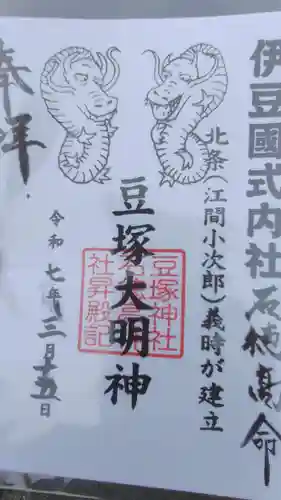 伊豆國式内社 石徳高命
北条(江間小次郎)義時が建立
豆塚大明神
豆塚神社
社昇殿記
奉拝
令和七年三月十五日